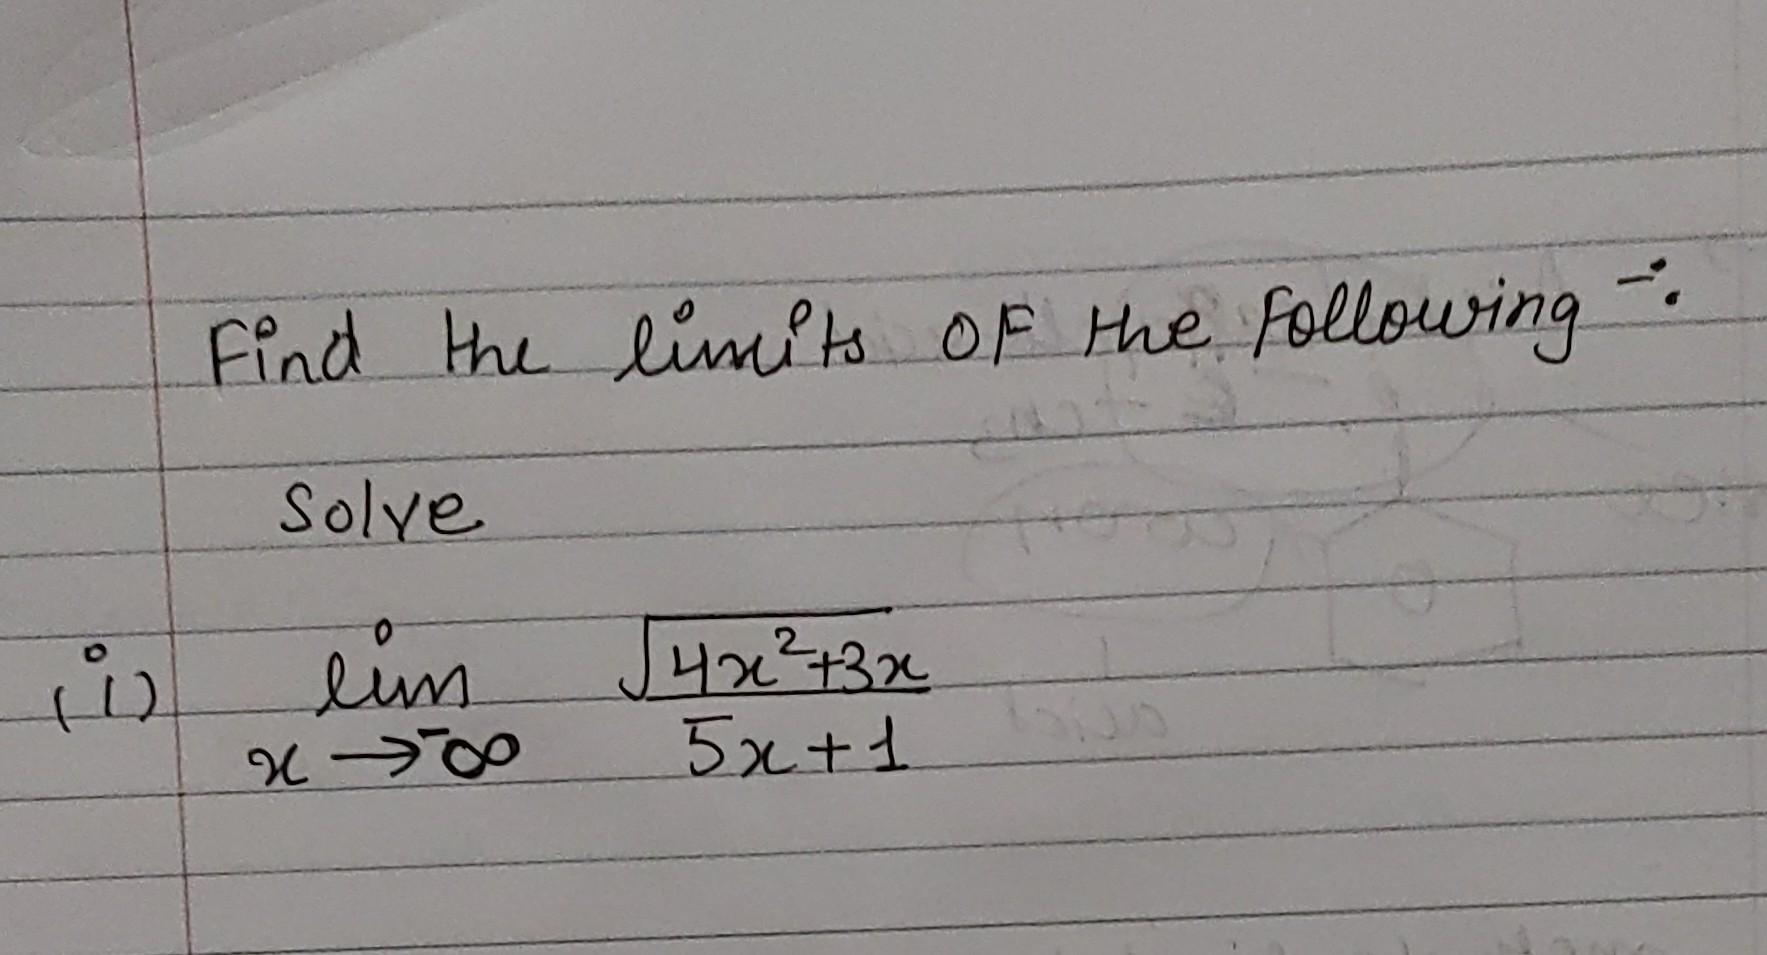 Find the limits of the following :-
Solve
(i) lim √4x²+3x
x→-∞ 5x+1